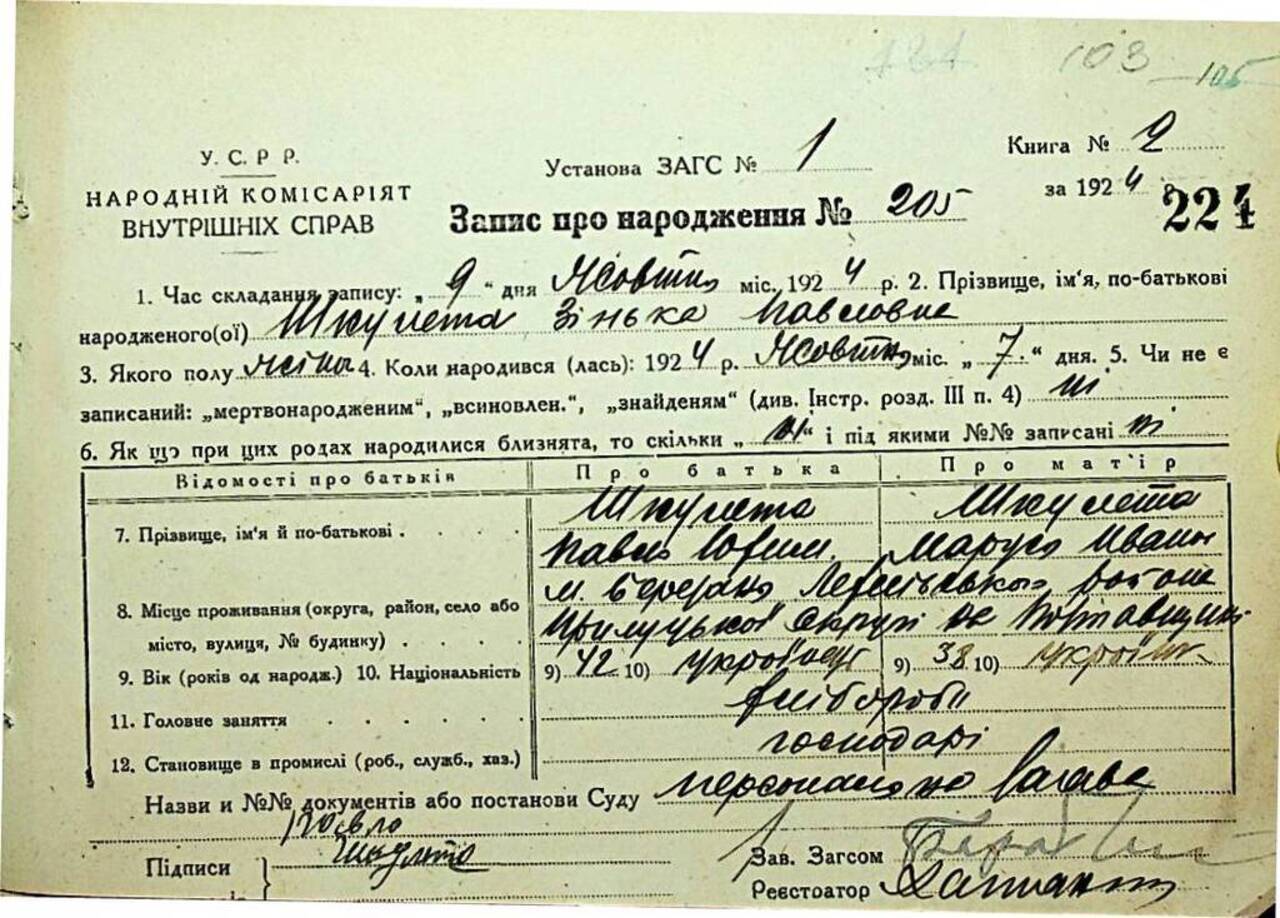 103 105
У. С. Р Р.
НАРОДНІЙ КОМІСАРІЯТ
ВНУТРІШНІХ СПРАВ
Установа ЗАГС № 1
Книга № 2
за 1924 р.
224
Запис про народження № 205
1. Час складання запису: „ 9 “ дня Жовтня міс. 1924 р. 2. Прізвище, ім'я, по-батькові
народженого(ої) Шкулета Зінька Павловна
3. Якого полу жіноч 4. Коли народився (лась): 1924 р. Жовтня міс. „ 7. “ дня. 5. Чи не є
записаний: „мертвонародженим“, „всиновлен.“, „знайденям“ (див. Інстр. розд. III п. 4) ні
6. Як що при цих родах народилися близнята, то скільки „ ні “ і під якими №№ записані ні
Відомості про батьків Про батька Про мат'ір
7. Прізвище, ім'я й по-батькові . . . . Шкулета Шкулета
Павло Юхим. Маруся Иван
8. Місце проживання (округа, район, село або м. Березань
місто, вулиця, № будинку) . . . . Прилуцької округи на Полтавщині
9. Вік (років од народж.) 10. Національність 9) 42 10) українець 9) 38 10) україн
11. Головне заняття . . . . . . хлібороби
12. Становище в промислі (роб., служб., хаз.) господарі
Назви и №№ документів або постанови Суду персонально
Підписи Шкулета
Зав. Загсом
Реєстоатор